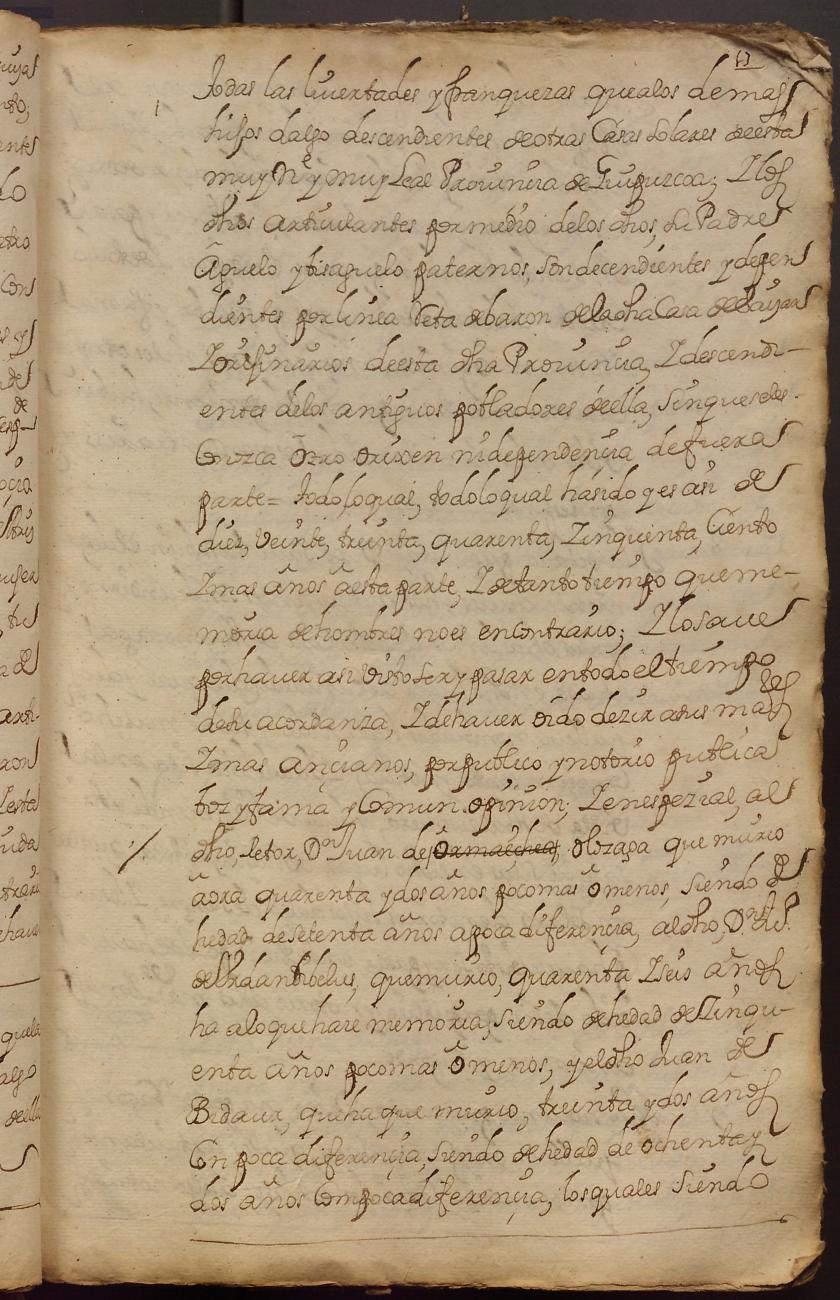 todas las livertades y franquezas que a los demas
hijos dalgo descendientes de otras Casas solares de esta
muy N.e y muy Leal Provincia de Guipuzcoa; Y los
dhos articulantes por medio de los dhos, su Padre
Aguelo y bisaguelo paternos, son decendientes y depen
dientes por linea Reta de baron de la dha Casa de
Y originarios de esta dha Provincia, Y descendi-
entes de los antiguos pobladores de ella, sin que se les
Conozca otro orixen ni dependencia de fuera
parte= todo lo qual, todo lo qual ha sido y es asi de
diez, veinte, treinta, quarenta, Zinquenta, Ciento
Y mas años a esta parte, Y de tanto tiempo que me-
moria de hombres no es en contrario; Y lo save
por haver asi visto ser y pasar en todo el tiempo
de su acordanza, Y de haver oido dezir a sus maes
Y mas ancianos, por publico y notorio publica
boz y fama y Comun opinion; Y en espezial, al
dho, Retor, Dn Juan de Ormaechea, olozaga que murio
aora quarenta y dos años poco mas o menos, siendo de
hedad de setenta años a poca diferencia, al dho, Dn
de que murio, quarenta Y seis años
ha a lo que hare memoria, siendo de hedad de Zinqu-
enta años poco mas o menos, y el dho Juan de
Bidaur, que ha que murio, treinta y dos años
Con poca diferencia, siendo de hedad de ochenta y
dos años Com poca diferencia, los quales siendo